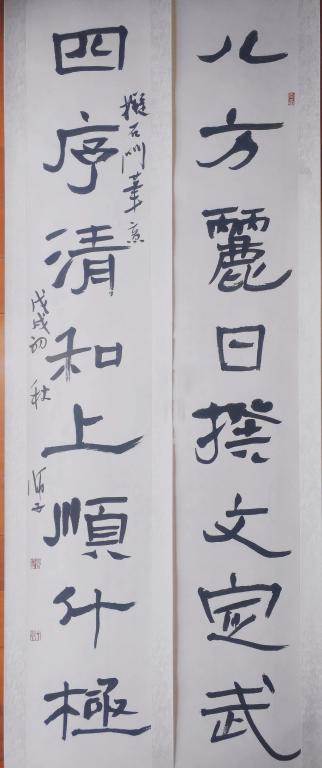 八方麗日撰文定武
四序清和上順什極
擬石門筆意
戊戌初秋